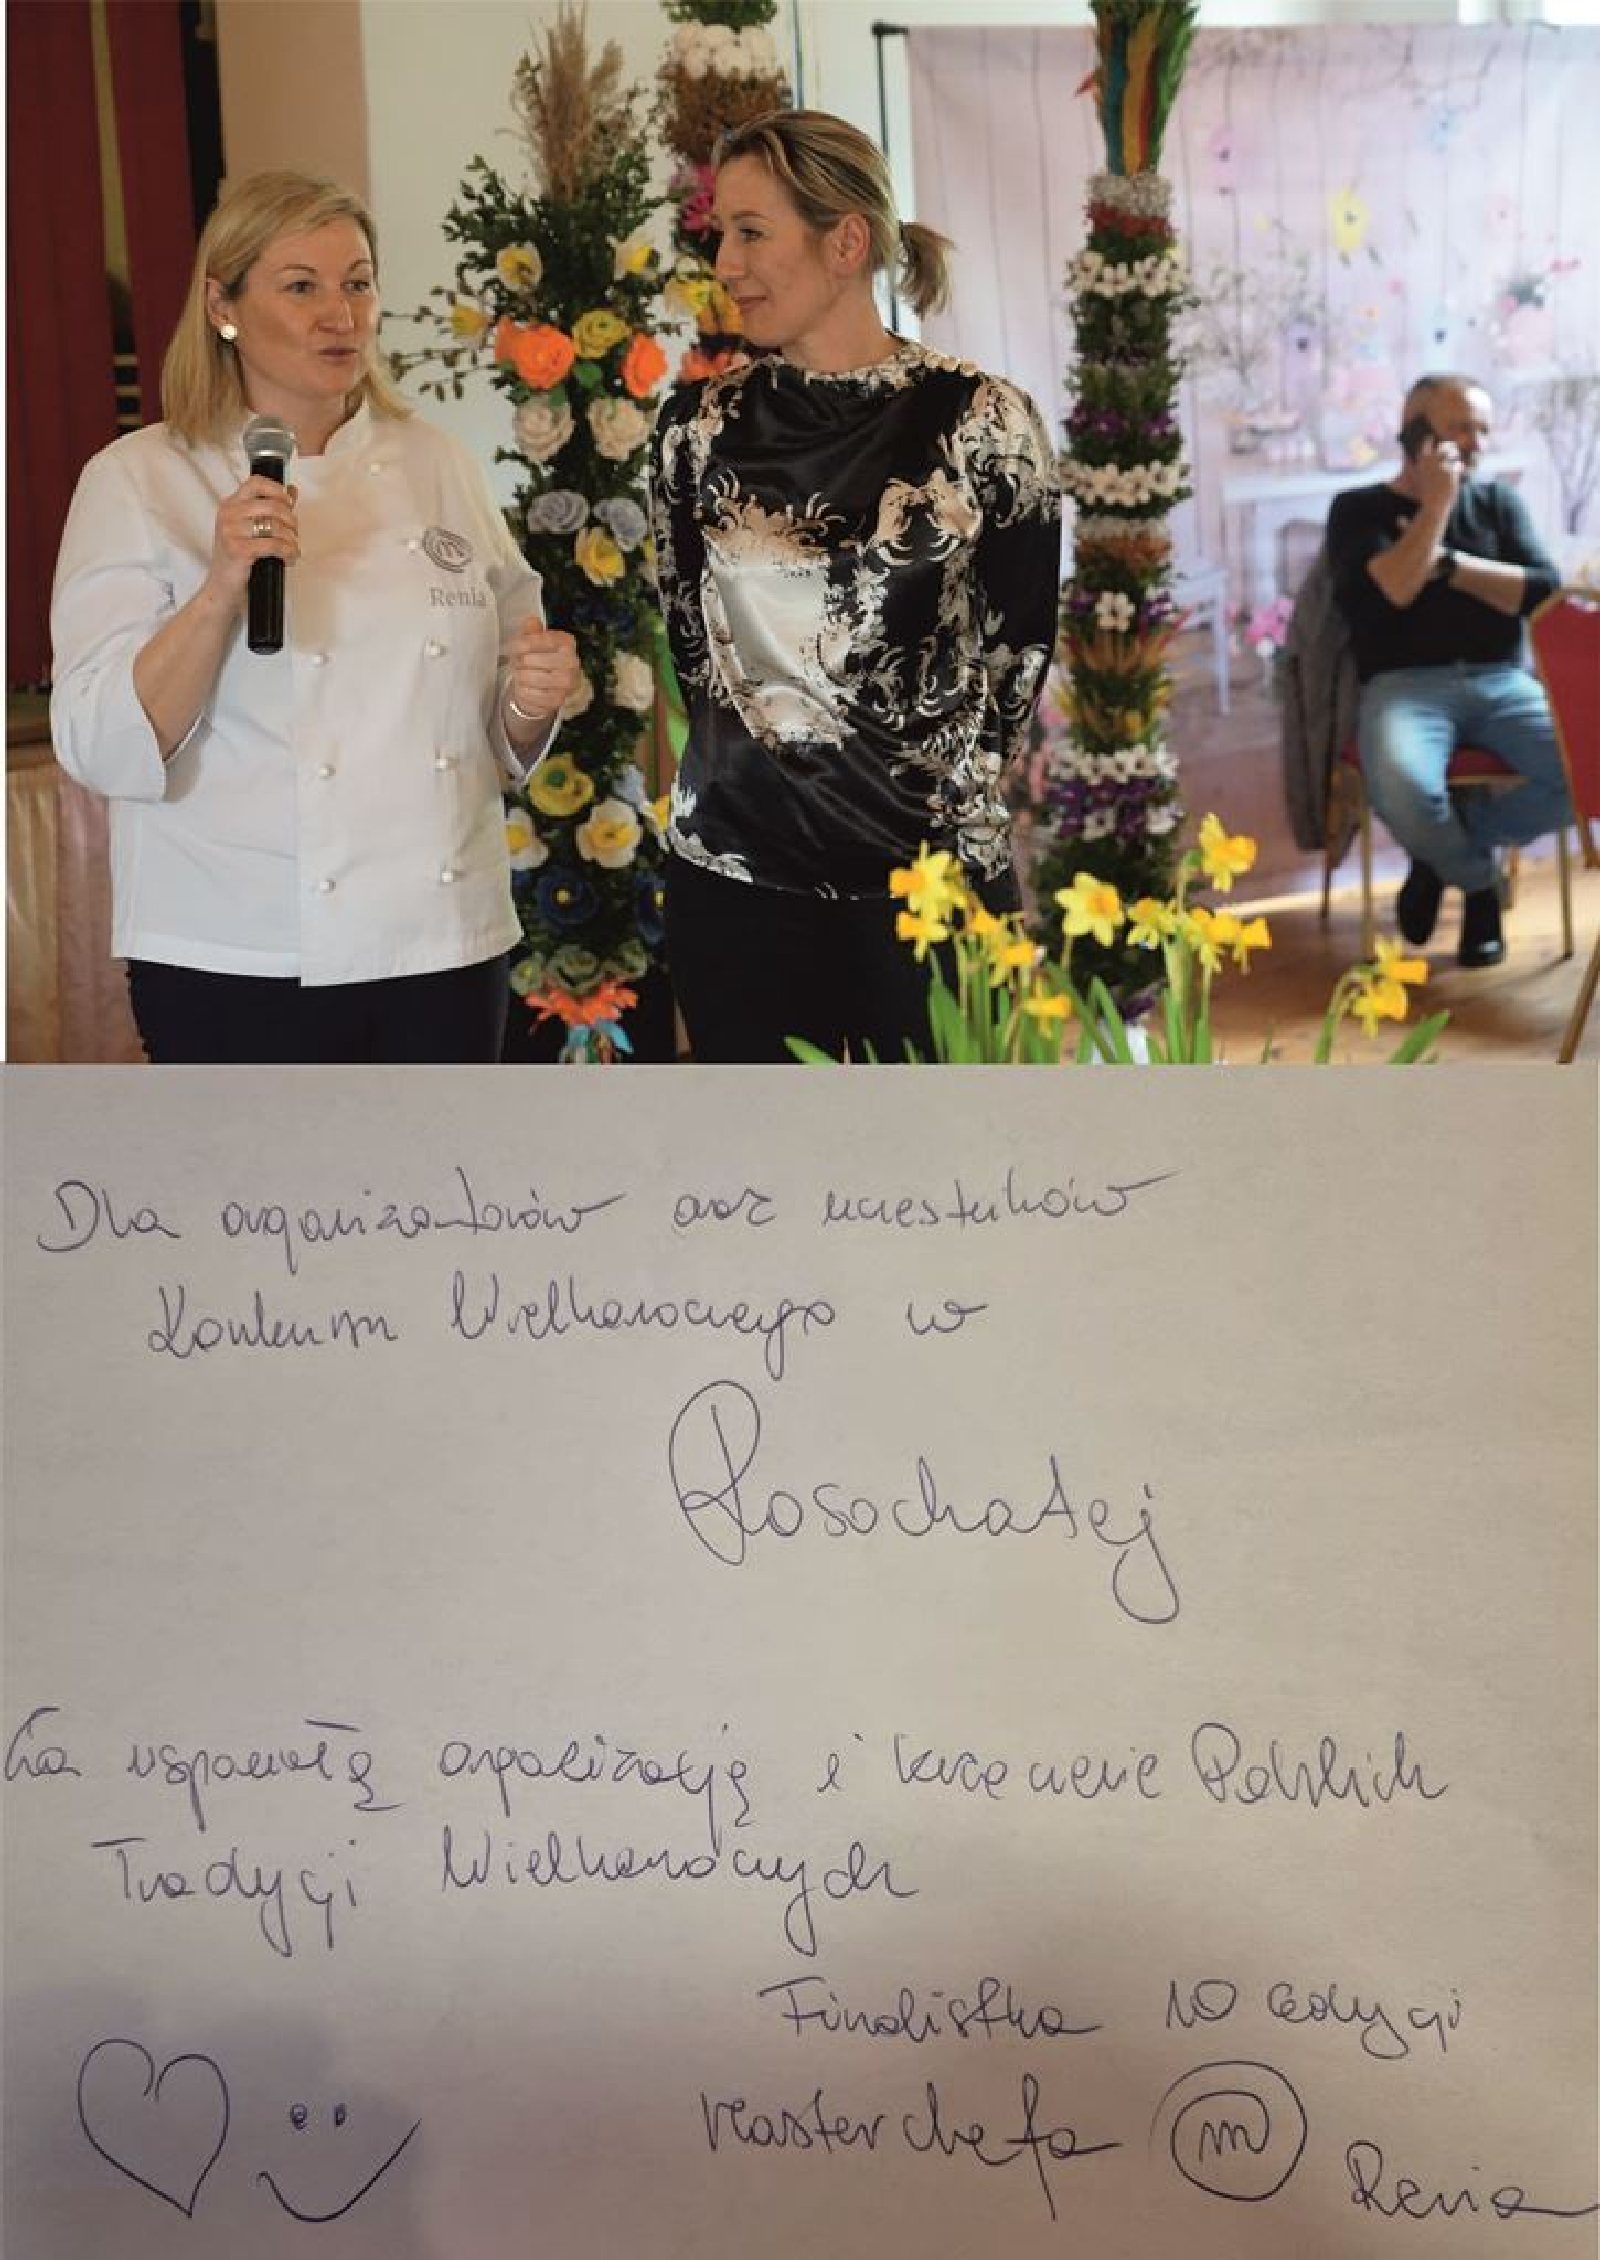 Renia
Dla organizatorów oraz uczestników
Konkursu Wielkanocnego w
Rosochatej
Za wspaniałą organizację i krzewienie Polskich
Tradycji Wielkanocnych
Finalistka 10 edycji
Masterchefa m
Renia